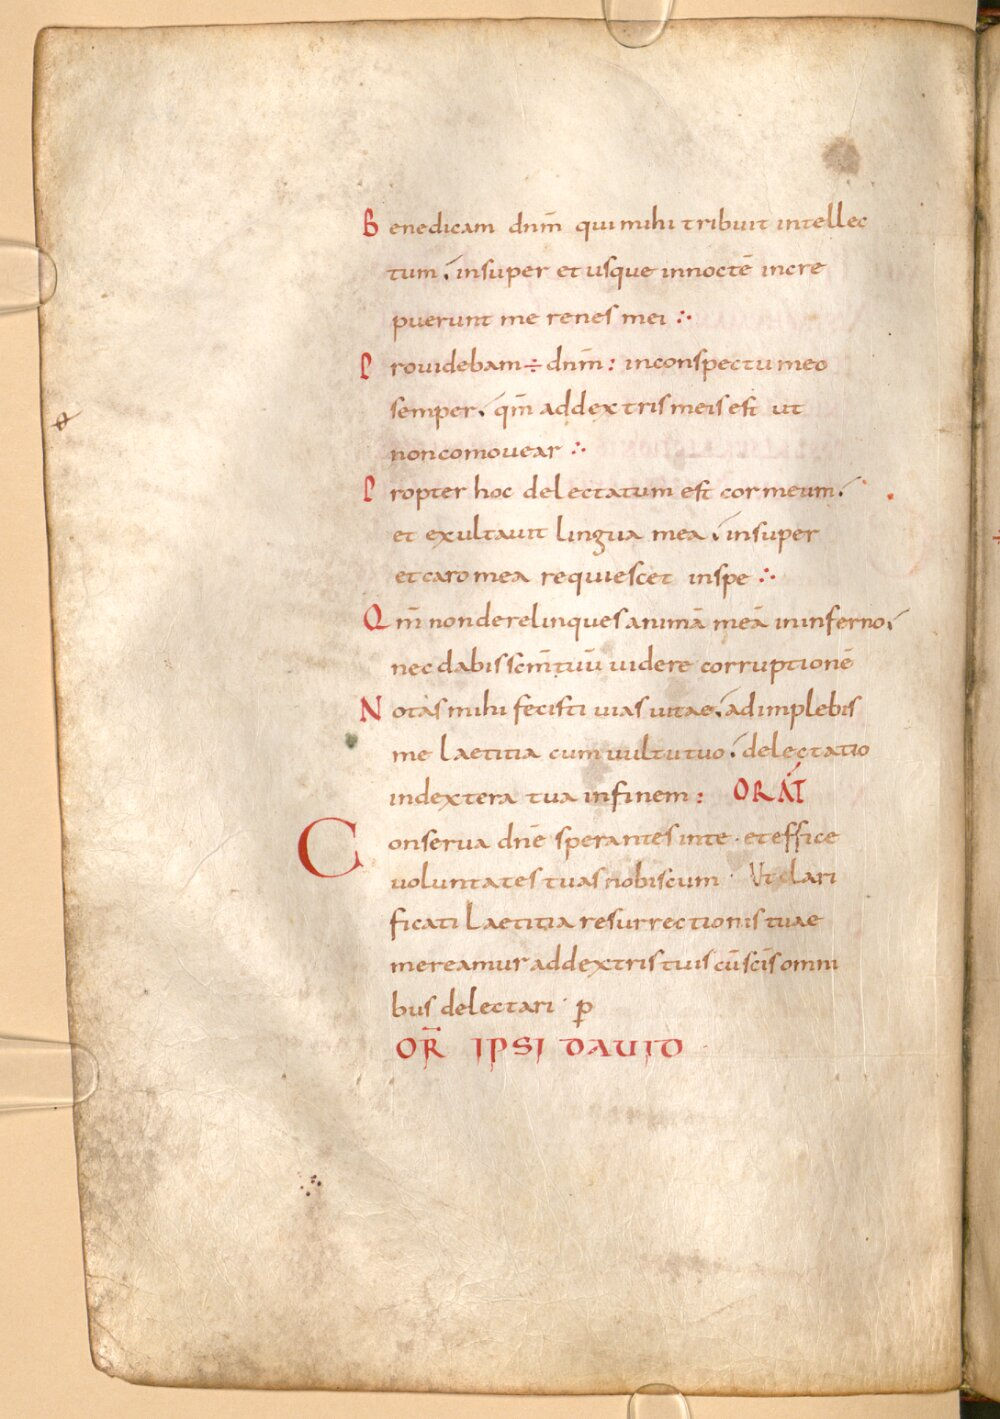 Benedicam dnm̄ qui mihi tribuit intellec
tum; insuper et usque innoctē incre
puerunt me renes mei ∴
Prouidebam ÷ dnm̄: inconspectu meo
semper; qm̄ addextris meis est ut
non comouear ∴
Propter hoc delectatum est cor meum;
et exultauit lingua mea; insuper
et caro mea requiescet inspe ∴
Qm̄ non derelinques animā meā ininferno;
nec dabis scm̄ tuū uidere corruptionē
Notas mihi fecisti uias uitae; adimplebis
me laetitia cum uultu tuo; delectatio
indextera tua infinem: ORAT̄
Conserua dnē sperantes inte · et effice
uoluntates tuas nobiscum · Ut clari
ficati laetitia resurrectionis tuae
mereamur addextris tuis cū scīs omni
bus delectari · p̱
OR̄ IPSI DAUID